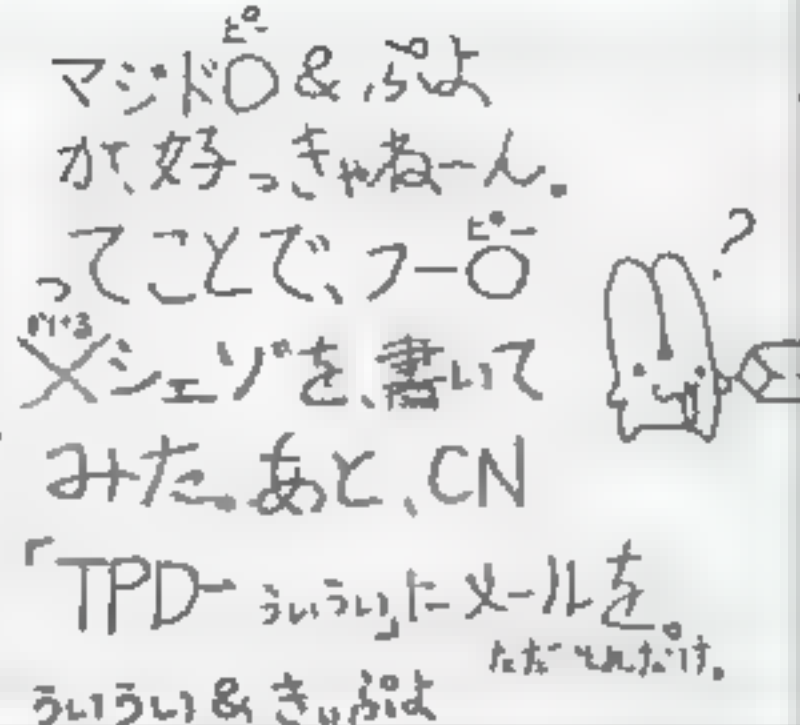 ピー
マジド〇&ぷよ
が、好っきゃねーん。
ピー
ってことで、フー〇
かける
×シェゾを、書いて
みた。あと、CN
「TPDーういうい」にメールを。
ただそれだけ。
ういうい&きぃぷよ
?